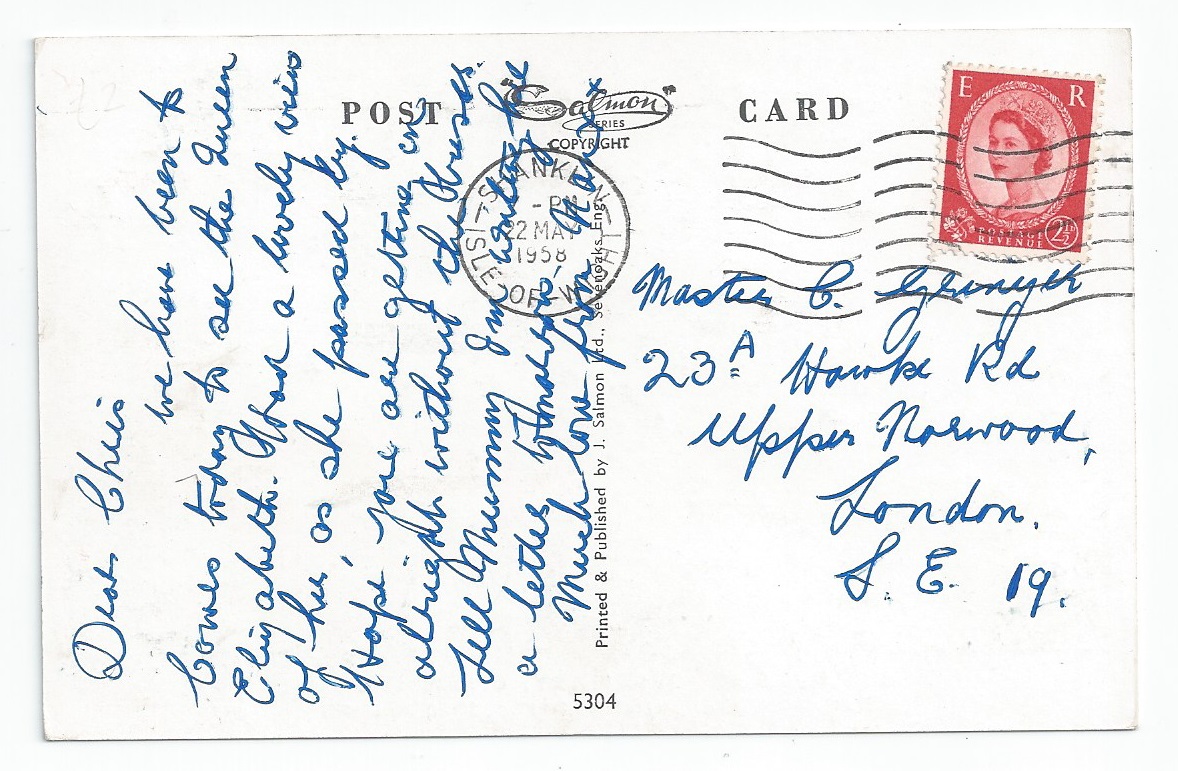 POST
"Salmon"
SERIES
COPYRIGHT
CARD
E R
POSTAGE
REVENUE
2½D
SHANKLIN
- PM
22 MAY
1958
ISLE-OF-WIGHT
Dear Chris
we have been to
Cowes today to see the Queen
Elizabeth. & had a lovely view
of her as she passed by.
Hope you are getting on
alright without the
Tell Mummy I'm wanting
a letter
Much love from x
Master C.
23A Hawke Rd
Upper Norwood,
London.
S. E. 19.
Printed & Published by J. Salmon Ltd., Sevenoaks, Eng.
5304